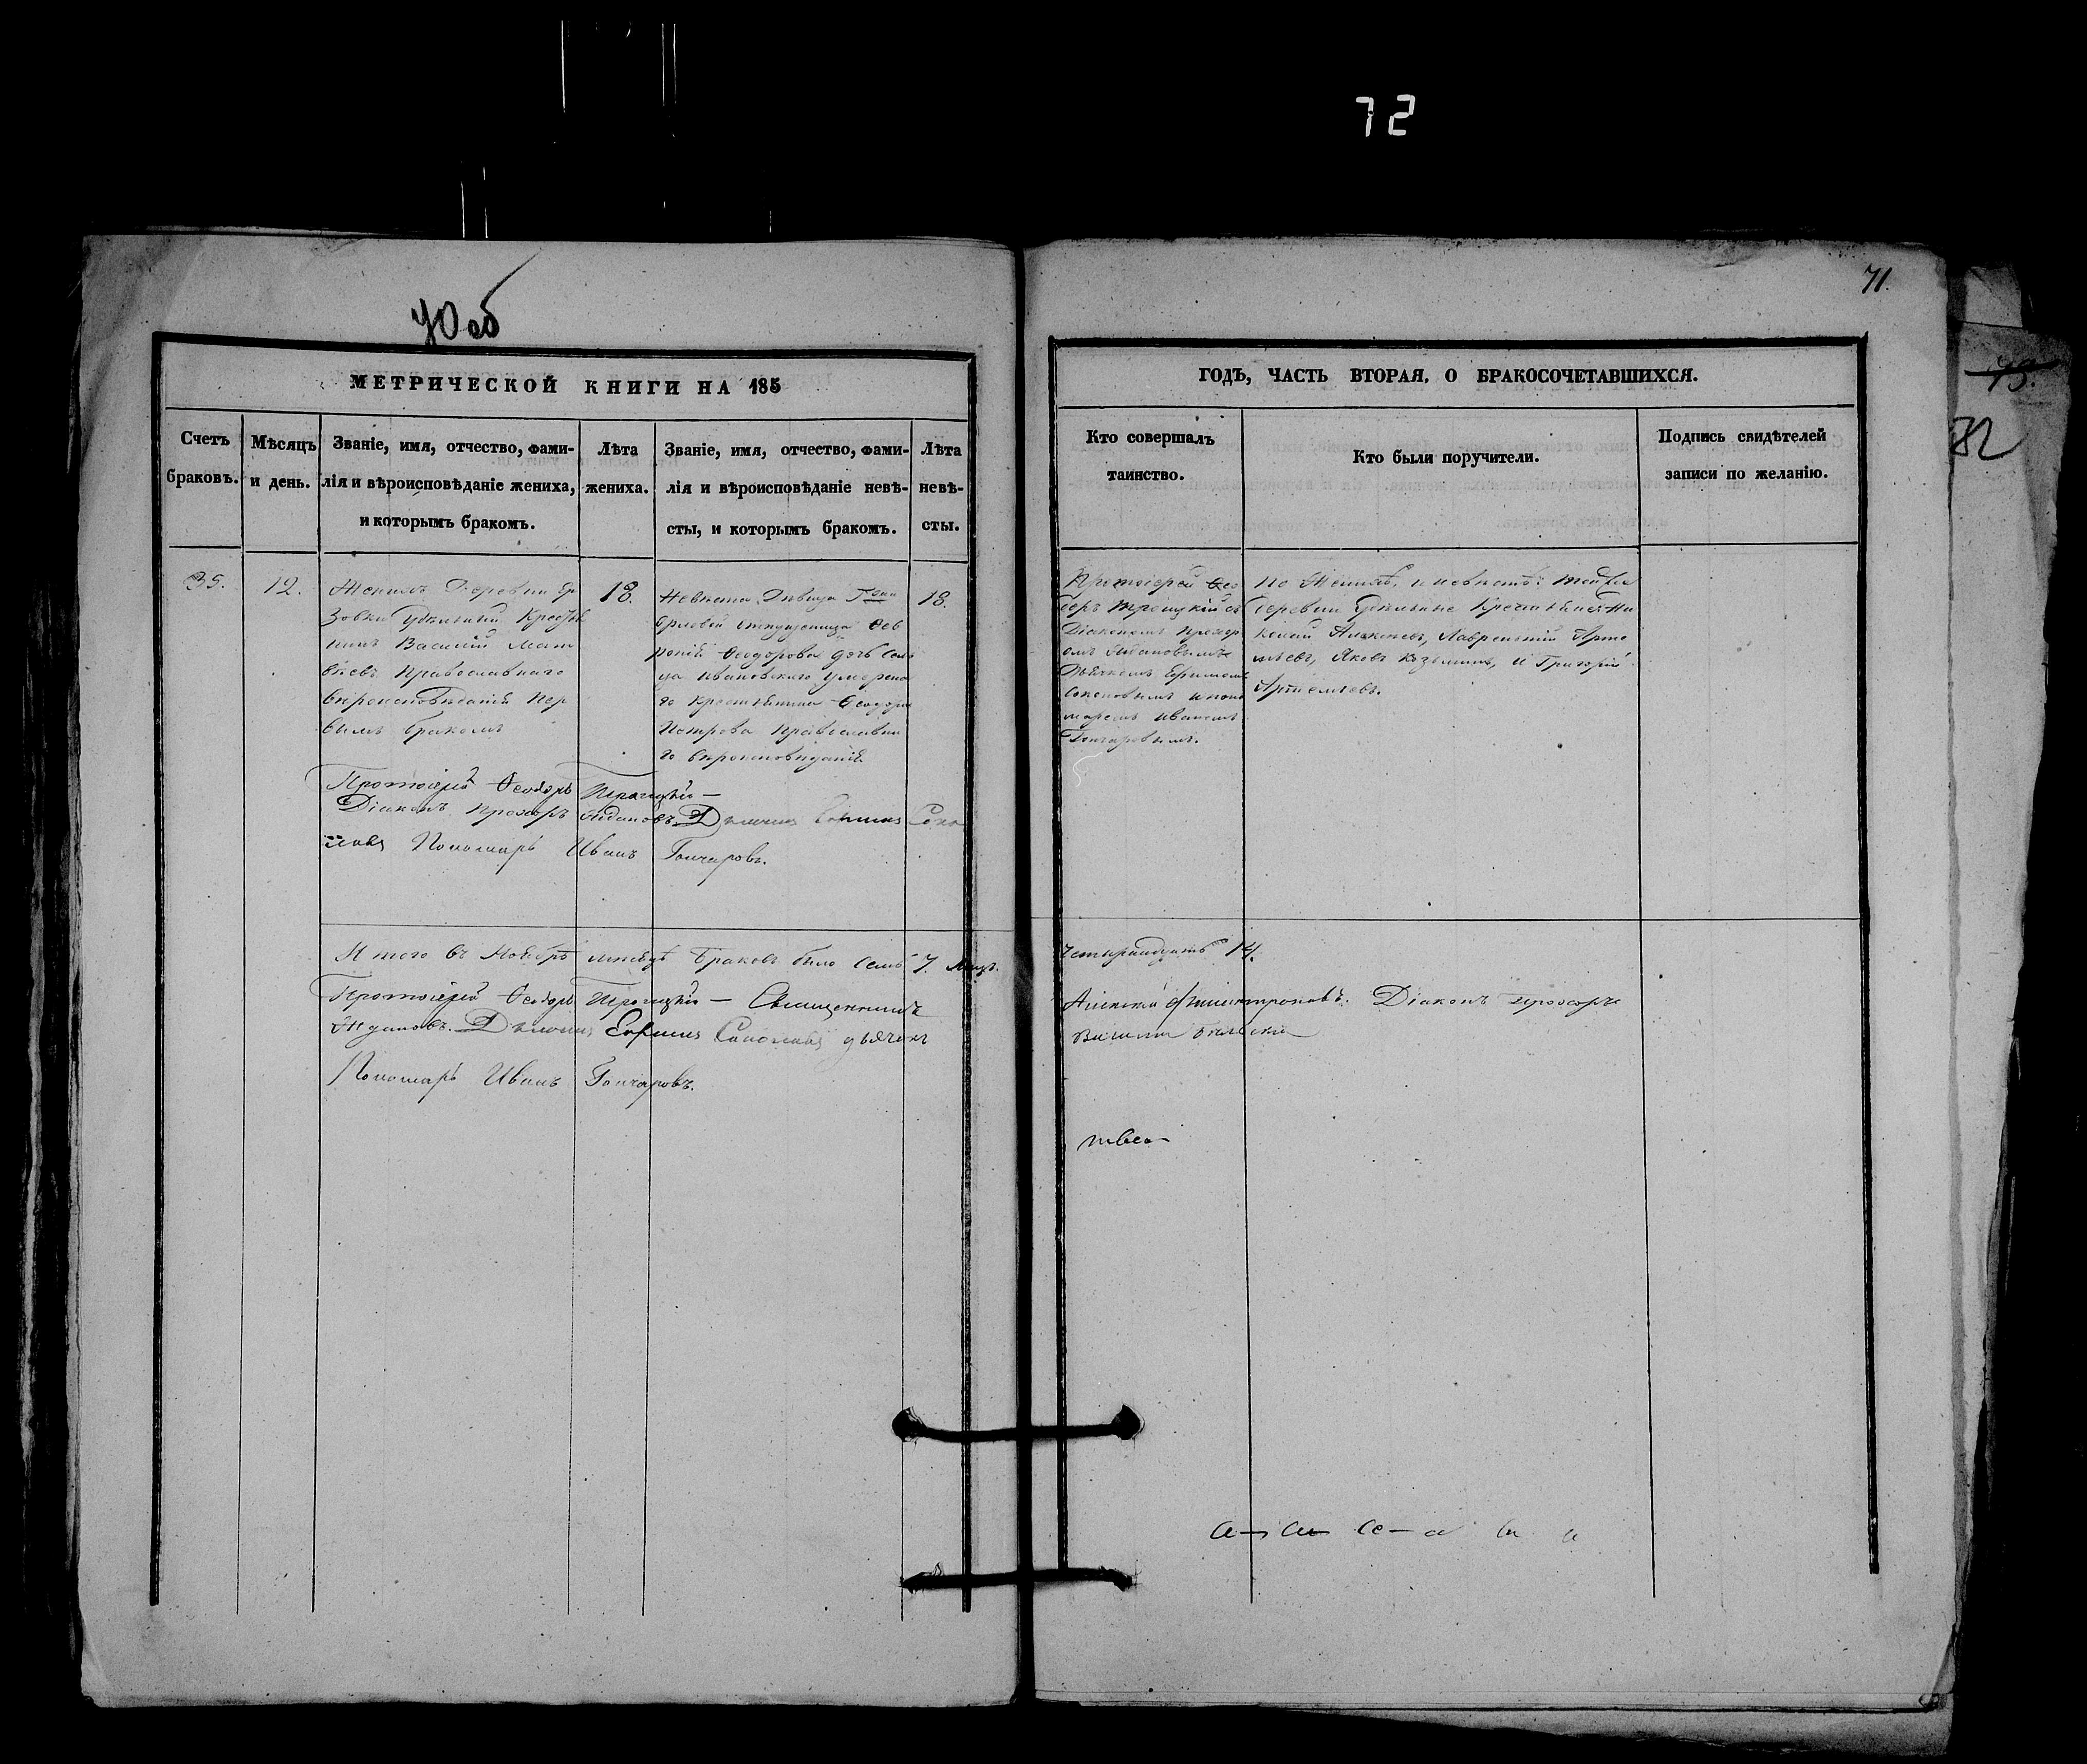 72
70 об
71.
73.
82
МЕТРИЧЕСКОЙ КНИГИ НА 185
Счетъ
браковъ.
Мѣсяцъ
и день.
Званіе, имя, отчество, фами-
лія и вѣроисповѣданіе жениха,
и которымъ бракомъ.
Лѣта
жениха.
Званіе, имя, отчество, фами-
лія и вѣроисповѣданіе невѣ-
сты, и которымъ бракомъ.
Лѣта
невѣ-
сты.
35.
12.
Женихъ Деревни
Удѣльный Крестья
нинъ Василій Мат
вѣевъ Православнаго
вѣроисповѣданія пер
вымъ бракомъ
18.
Невѣста Дѣвица
Фев
ронія Ѳеодорова дочь Сель
ца Ивановскаго умерша
го Крестьянина Ѳеодора
Петрова Православна
го вѣроисповѣданія
18.
Протоіерей Ѳеодоръ Троицкій
Діаконъ Прохоръ Ждановъ Дьячекъ Ефимъ Соко
ловъ Пономарь Иванъ Гончаровъ.
Итого въ Ноябрѣ мѣсяцѣ браковъ было семь 7. лицъ.
Протоіерей Ѳеодоръ Троицкій Священникъ
Ждановъ. Дьячекъ Ефимъ Соколовъ дьячекъ
Пономарь Иванъ Гончаровъ.
ГОДЪ, ЧАСТЬ ВТОРАЯ, О БРАКОСОЧЕТАВШИХСЯ.
Кто совершалъ
таинство.
Кто были поручители.
Подпись свидѣтелей
записи по желанію.
Протоіерей Ѳео
доръ Троицкій съ
Діакономъ Прохор
омъ Ждановымъ
Дьячкомъ Ефимомъ
Соколовымъ и поно
маремъ Иваномъ
Гончаровымъ.
По Женихѣ и невѣстѣ: той же
деревни Удѣльные Крестьяне: Ни
колай Алексѣевъ, Лаврентій Арте
мьевъ, Яковъ Козьминъ, и Григорій
Артемьевъ.
четырнадцать 14.
Алексій Діаконъ Прохоръ